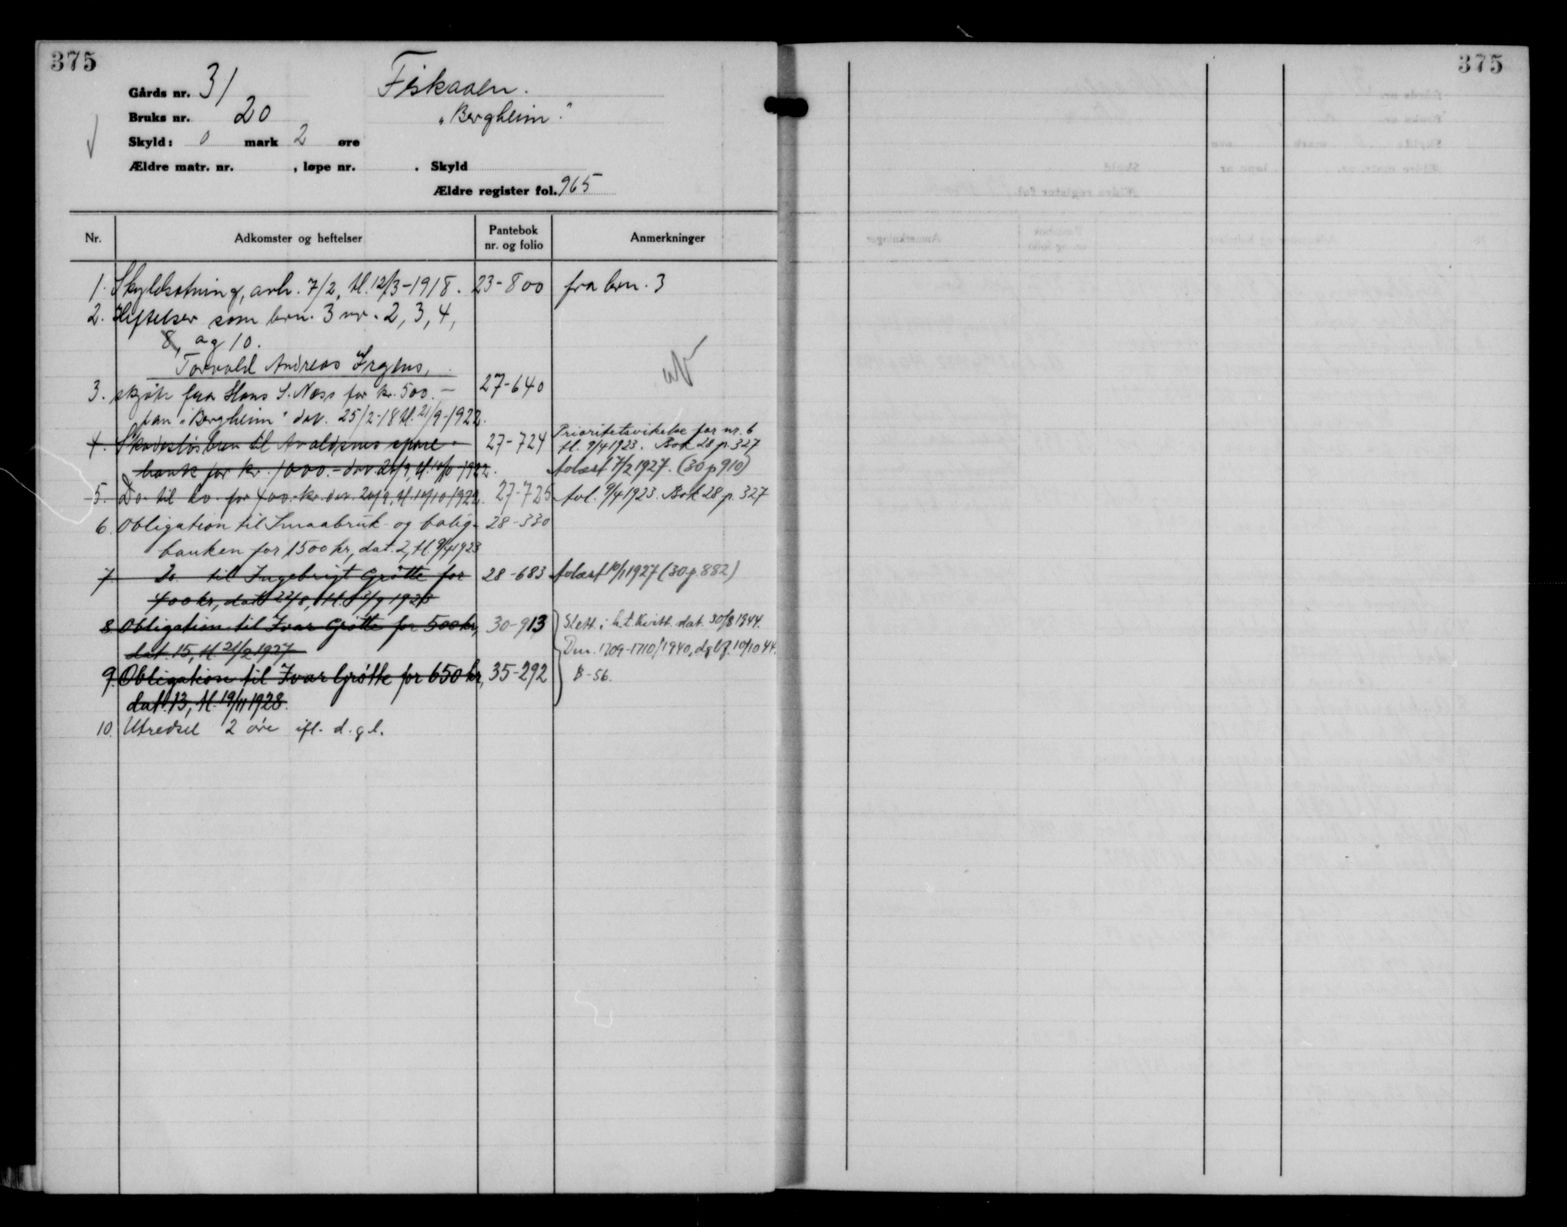 375
375
Gårds nr. 31
Fiskaaen.
Bruks nr. 20
"Bergheim".
Skyld: 0 mark 2 øre
Ældre matr. nr. , løpe nr. . Skyld
Ældre register fol. 965
Nr. Adkomster og heftelser Pantebok nr. og folio Anmerkninger
1. Skyldsetning, avh. 7/2, tl. 12/3-1918. 23-800 fra brn. 3
2. Heftelser som brn. 3 nr. 2, 3, 4,
8, og 10.
Torvald Andreas Irgens,
3. skjøte fra Hans S. Næss for kr. 500.- 27-640
paa "Bergheim" dat. 25/2-18 tl. 21/9-1922.
4. Skadesløsbrev til Avaldsnes spare- 27-724 Prioritetsvikelse for nr. 6
tl. 9/4 1923. Bok 28 p. 327
bank for kr. 1000.- dat 20/9, tl. 10/10-1922. Avlæst 17/2 1927. (30 p 910)
5. Do til do for 400 kr. dat. 20/9, tl. 10/10 1922. 27-725 Avl. 9/4 1923. Bok 28 p. 327
6. Obligation til Smaabruk- og bolig- 28-330
banken for 1500 kr, dat. 2, tl 9/4 1923
7 Do til Ingebrigt Grøtte for 28-683 Avlæst 10/1 1927 (30 p. 882)
400 kr, dat 22/8, tl 1923
8 Obligation til Ivar Grøtte for 500 kr, 30-913 Slett. i h.t. kvitt. dat. 30/8 1944.
dat. 15, tl 21/2 1927 Dnr. 1709-1710/1940, dgbf. 10/10 44.
9. Obligation til Ivar Grøtte for 650 kr, 35-292 B-56.
dat. 13, tl. 19/11 1928.
10. Utredsel 2 øre ifl. d.g.l.